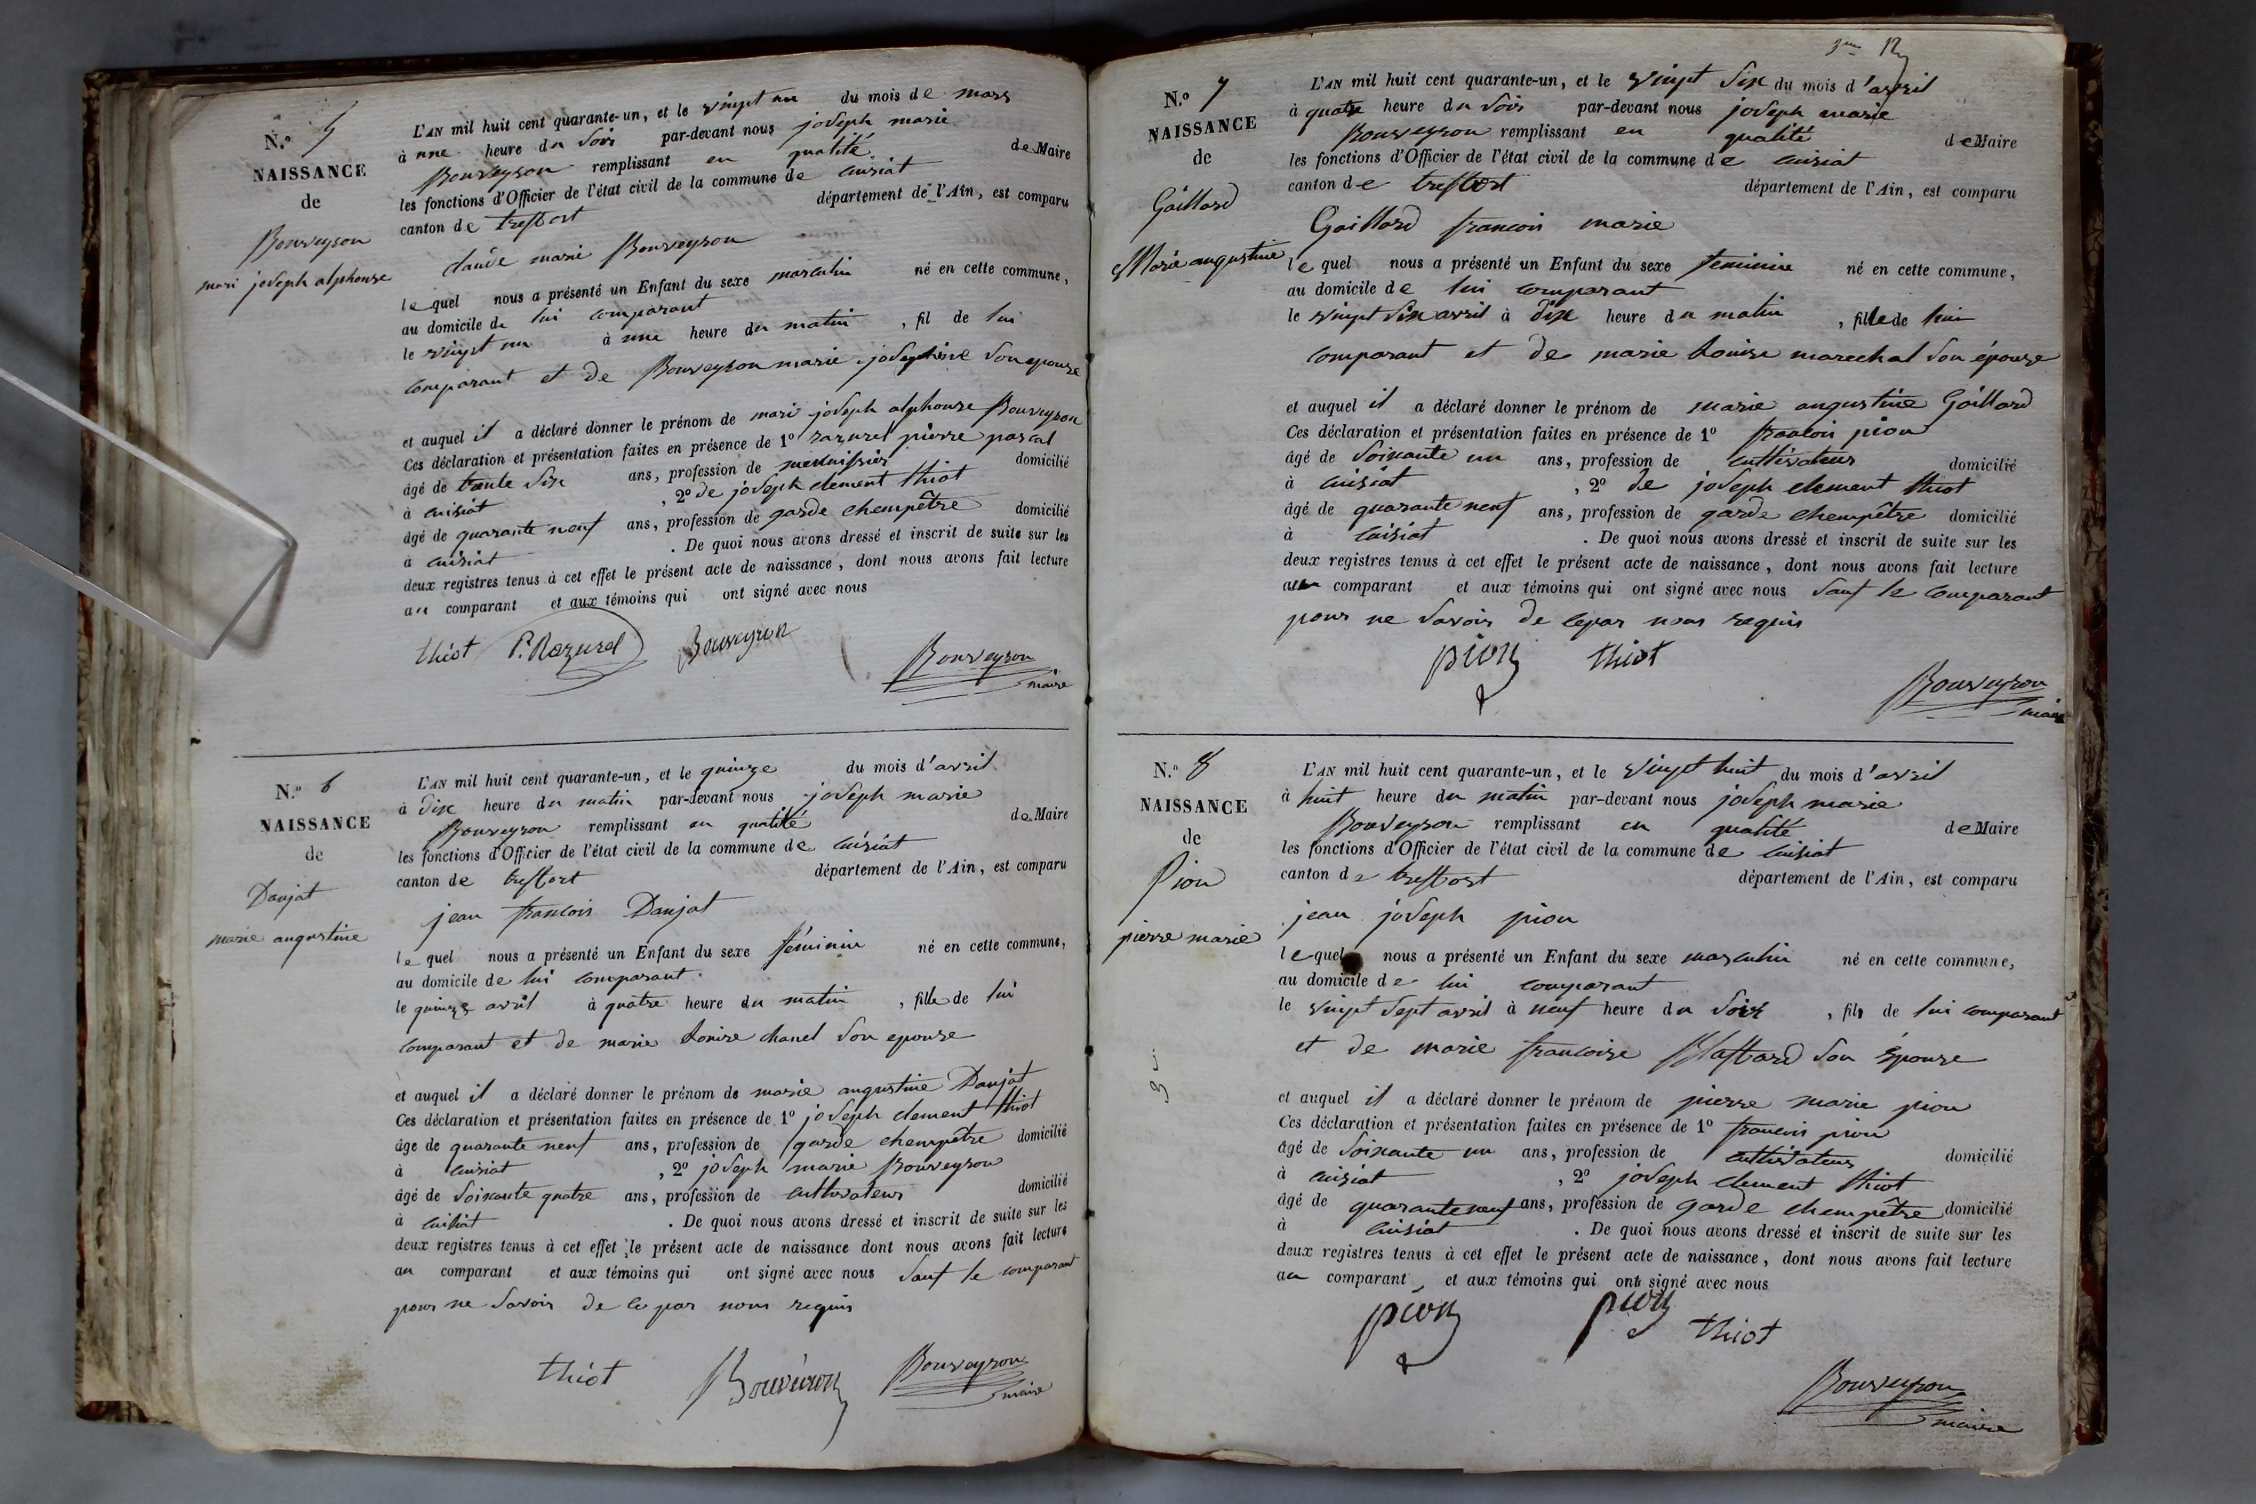 N.º 5
NAISSANCE
de
Bouveyron
mari joseph alphonse
L'AN mil huit cent quarante-un, et le vingt un du mois de mars
à une heure du soir par-devant nous joseph marie
Bouveyron remplissant en qualité de Maire
les fonctions d'Officier de l'état civil de la commune de cuisiat
canton de treffort département de l'Ain, est comparu
claude marie Bouveyron
le quel nous a présenté un Enfant du sexe masculin né en cette commune,
au domicile de lui comparant
le vingt un à une heure du matin, fil de lui
comparant et de Bouveyron marie josephine son epouse
et auquel il a déclaré donner le prénom de mari joseph alphonse Bouveyron
Ces déclaration et présentation faites en présence de 1º razurel pierre pascal
âgé de trente six ans, profession de menuisier domicilié
à cuisiat, 2º de joseph clement thiot
âgé de quarante neuf ans, profession de garde chempêtre domicilié
à cuisiat. De quoi nous avons dressé et inscrit de suite sur les
deux registres tenus à cet effet le présent acte de naissance, dont nous avons fait lecture
au comparant et aux témoins qui ont signé avec nous
thiot P. Razurel Bouveyron
Bouveyron
maire
N.º 6
NAISSANCE
de
Danjat
marie augustine
L'AN mil huit cent quarante-un, et le quinze du mois d'avril
à dix heure du matin par-devant nous joseph marie
Bouveyron remplissant en qualité de Maire
les fonctions d'Officier de l'état civil de la commune de cuisiat
canton de treffort département de l'Ain, est comparu
jean francois Danjat
le quel nous a présenté un Enfant du sexe féminin né en cette commune,
au domicile de lui comparant
le quinze avril à quatre heure du matin, fille de lui
comparant et de marie louise chanel son epouse
et auquel il a déclaré donner le prénom de marie augustine Danjat
Ces déclaration et présentation faites en présence de 1º joseph clement thiot
âge de quarante neuf ans, profession de garde chempêtre domicilié
à cuisiat, 2º joseph marie Bouveyron
âgé de soixante quatre ans, profession de cultivateur domicilié
à cuisiat. De quoi nous avons dressé et inscrit de suite sur les
deux registres tenus à cet effet le présent acte de naissance dont nous avons fait lecture
au comparant et aux témoins qui ont signé avec nous sauf le comparant
pour ne savoir de ce par nous requis
thiot Bouveiron Bouveyron
maire
3me 12
N.º 7
NAISSANCE
de
Gaillard
Marie augustine
L'AN mil huit cent quarante-un, et le vingt six du mois d'avril
à quatre heure du soir par-devant nous joseph marie
Bouveyron remplissant en qualité de Maire
les fonctions d'Officier de l'état civil de la commune de cuisiat
canton de treffort département de l'Ain, est comparu
Gaillard francois marie
le quel nous a présenté un Enfant du sexe feminin né en cette commune,
au domicile de lui comparant
le vingt six avril à dix heure du matin, fille de lui
comparant et de marie louise marechal son épouse
et auquel il a déclaré donner le prénom de marie augustine Gaillard
Ces déclaration et présentation faites en présence de 1º francois pion
âgé de soixante un ans, profession de cultivateur domicilié
à cuisiat, 2º de joseph clement thiot
âgé de quarante neuf ans, profession de garde chempêtre domicilié
à cuisiat. De quoi nous avons dressé et inscrit de suite sur les
deux registres tenus à cet effet le présent acte de naissance, dont nous avons fait lecture
au comparant et aux témoins qui ont signé avec nous sauf le comparant
pour ne savoir de cepar nous requis
pion thiot
Bouveyron
maire
N.º 8
NAISSANCE
de
Pion
pierre marie
L'AN mil huit cent quarante-un, et le vingt huit du mois d'avril
à huit heure du matin par-devant nous joseph marie
Bouveyron remplissant en qualité de Maire
les fonctions d'Officier de l'état civil de la commune de cuisiat
canton de treffort département de l'Ain, est comparu
jean joseph pion
le quel nous a présenté un Enfant du sexe masculin né en cette commune,
au domicile de lui comparant
le vingt sept avril à neuf heure du soir, fils de lui comparant
et de marie francoise Blaffard son épouse
et auquel il a déclaré donner le prénom de pierre marie pion
Ces déclaration et présentation faites en présence de 1º francois pion
âgé de soixante un ans, profession de cultivateur domicilié
à cuisiat, 2º joseph clement thiot
âgé de quarante neuf ans, profession de garde chempêtre domicilié
à cuisiat. De quoi nous avons dressé et inscrit de suite sur les
deux registres tenus à cet effet le présent acte de naissance, dont nous avons fait lecture
au comparant, et aux témoins qui ont signé avec nous
pion pion thiot
Bouveyron
maire